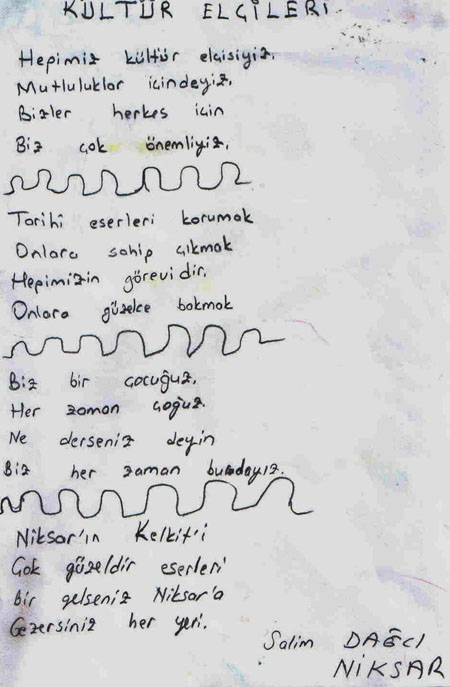 KÜLTÜR ELÇİLERİ
Hepimiz kültür elçisiyiz.
Mutluluklar içindeyiz.
Bizler herkes için
Biz çok önemliyiz.
Tarihî eserleri korumak
Onlara sahip çıkmak
Hepimizin görevidir.
Onlara güzelce bakmak
Biz bir çocuğuz.
Her zaman çoğuz.
Ne derseniz deyin
Biz her zaman buradayız.
Niksar'ın Kelkit'i
Çok güzeldir eserleri
Bir gelseniz Niksar'a
Gezersiniz her yeri.
Salim DAĞCI
NİKSAR